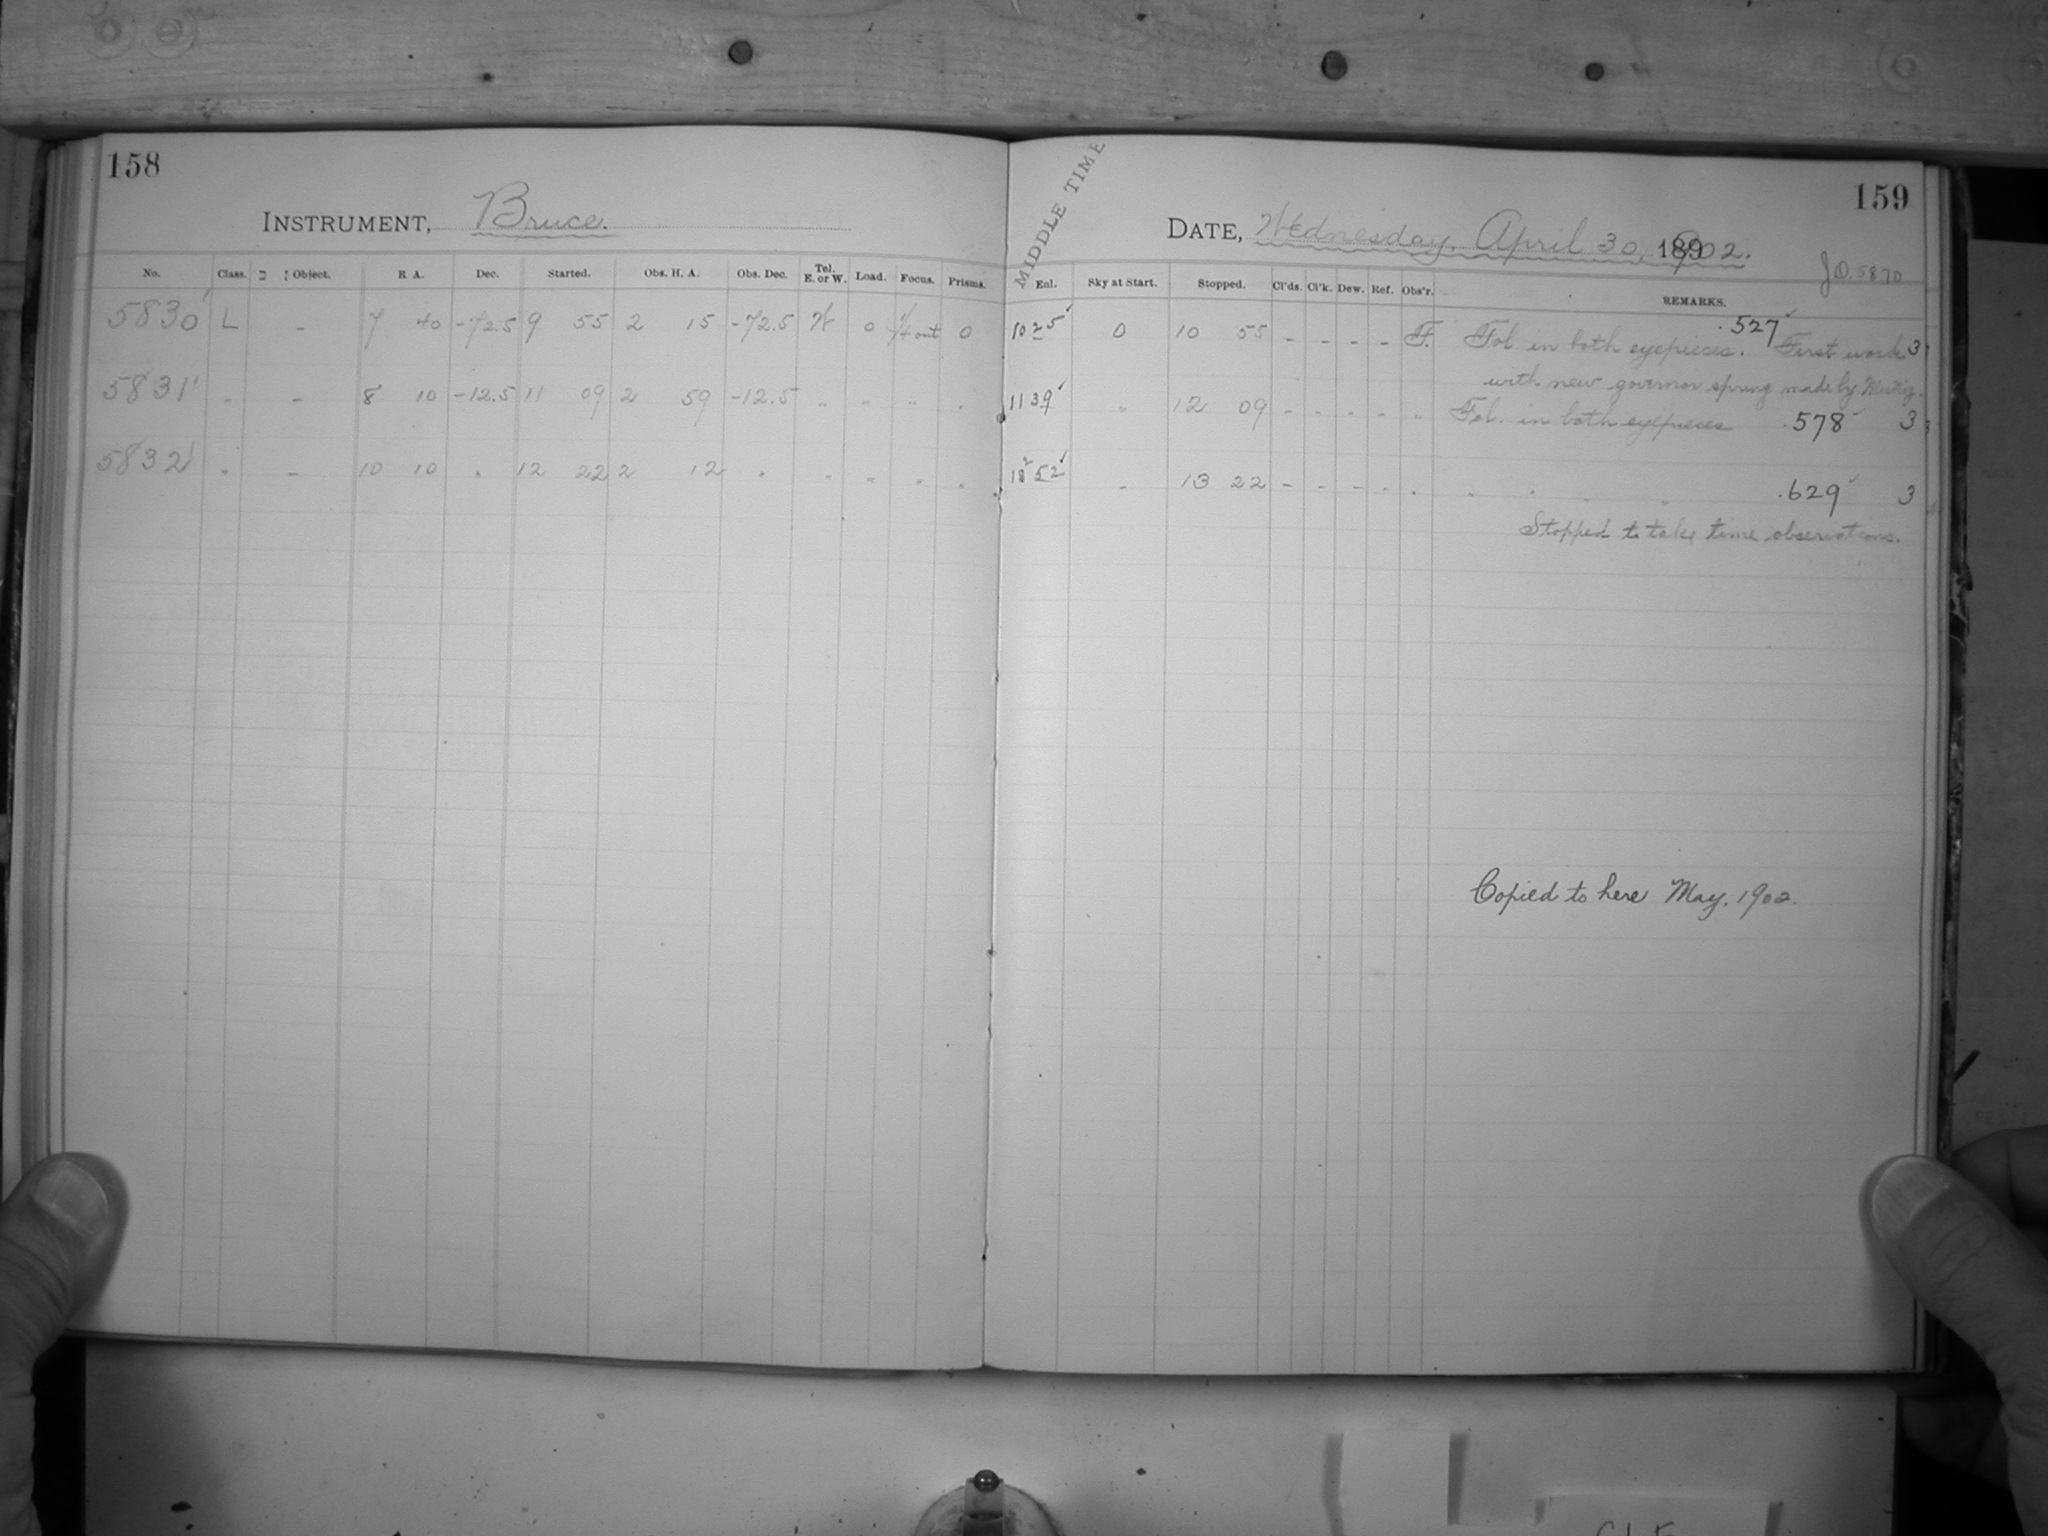 158
INSTRUMENT, Bruce.
No. Class. Object. R A. Dec. Started. Obs. H. A. Obs. Dec. Tel. E. or W. Load. Focus. Prisms.
5830 L - 7 40 -72.5 9 55 2 15 -72.5 W 0 1/4 out 0
5831 " - 8 10 -12.5 11 09 2 59 -12.5 " " " "
5832 " - 10 10 " 12 22 2 12 " " " " "
MIDDLE TIME
159
DATE, Wednesday, April 30, 1902.
J.D. 5870
Enl. Sky at Start. Stopped. Cl'ds. Cl'k. Dew. Ref. Obs'r. REMARKS.
10 25 0 10 55 - - - - F. Fol. in both eyepieces. .527 First work 3
with new governor spring made by
11 39 " 12 09 - - - - " Fol. in both eyepieces .578 3
12 52 " 13 22 - - - - " " " " " .629 3
Stopped to take time observations.
Copied to here May, 1902.